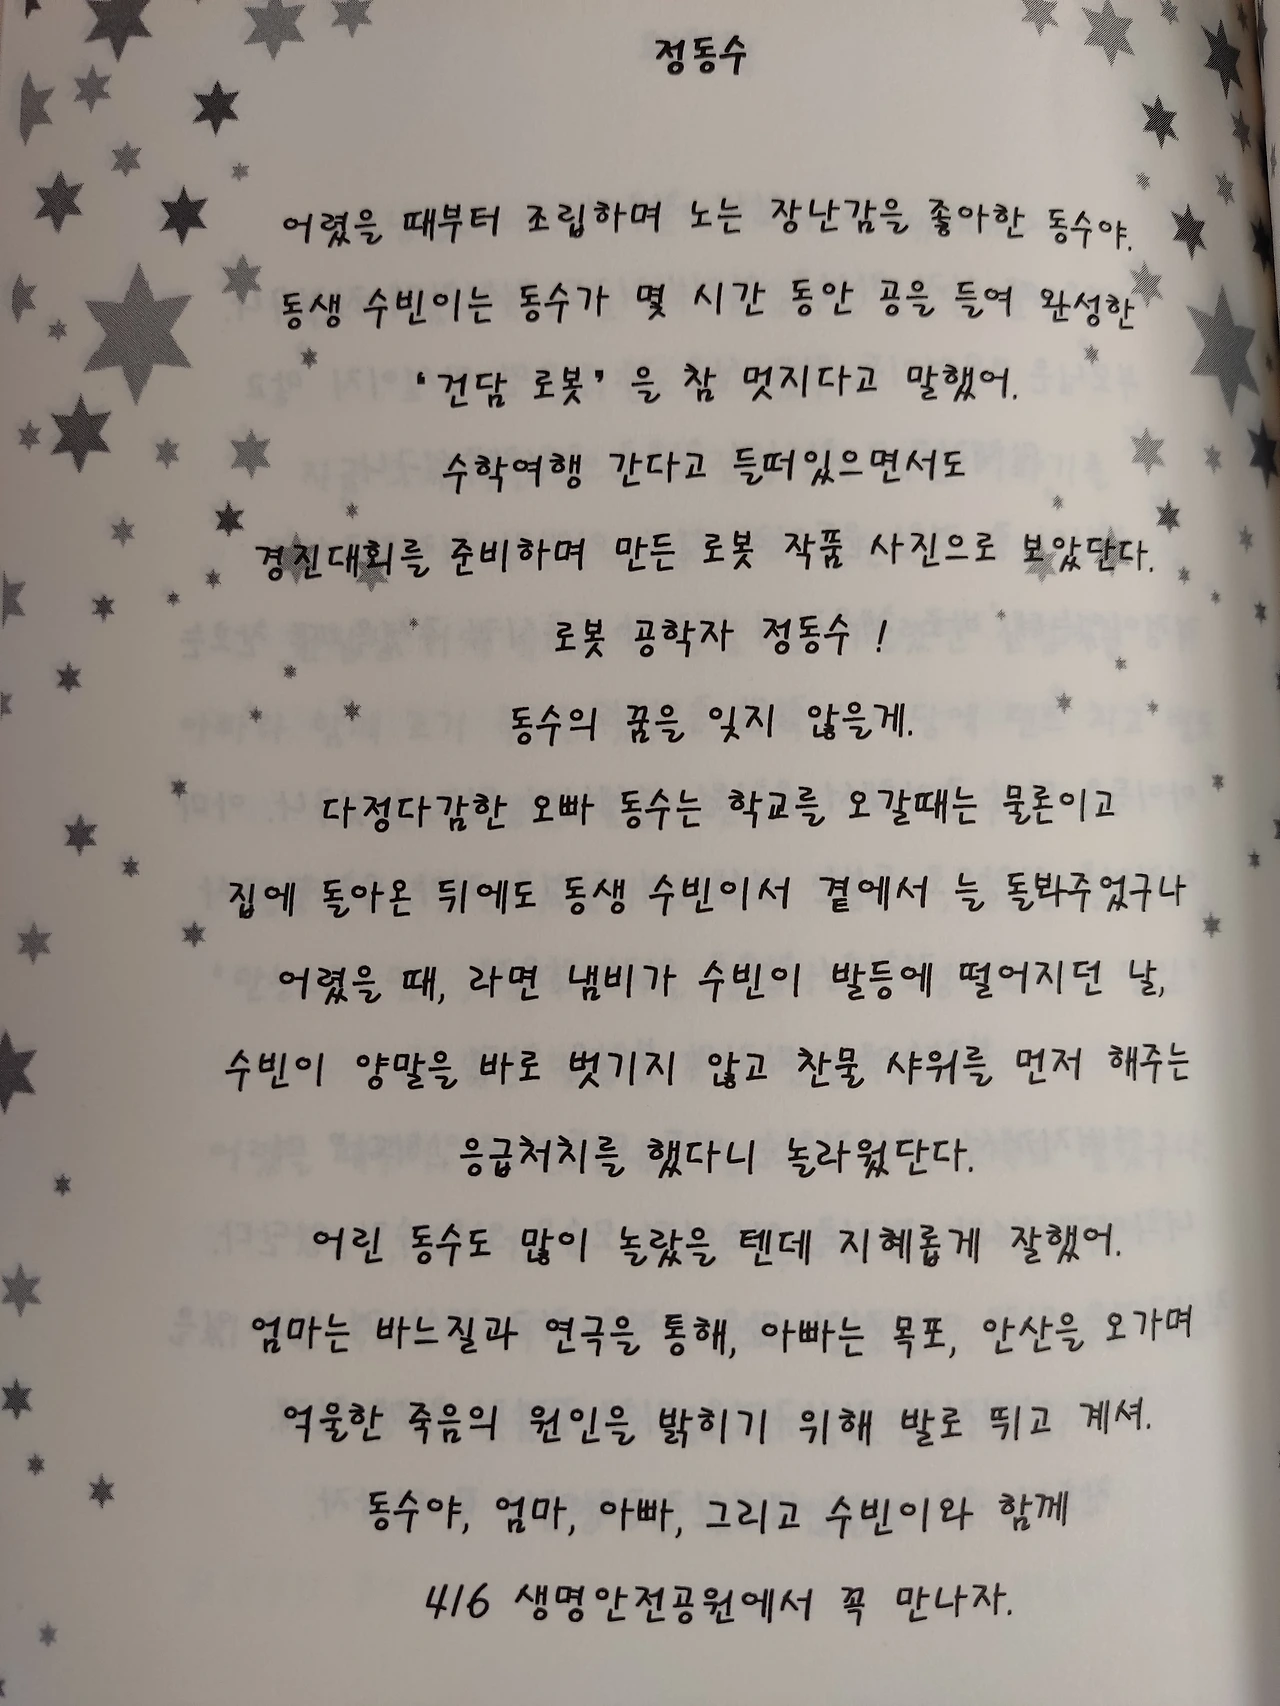 정동수
어렸을 때부터 조립하며 노는 장난감을 좋아한 동수야.
동생 수빈이는 동수가 몇 시간 동안 공을 들여 완성한
'건담 로봇'을 참 멋지다고 말했어.
수학여행 간다고 들떠있으면서도
경진대회를 준비하며 만든 로봇 작품 사진으로 보았단다.
로봇 공학자 정동수!
동수의 꿈을 잊지 않을게.
다정다감한 오빠 동수는 학교를 오갈때는 물론이고
집에 돌아온 뒤에도 동생 수빈이서 곁에서 늘 돌봐주었구나
어렸을 때, 라면 냄비가 수빈이 발등에 떨어지던 날,
수빈이 양말을 바로 벗기지 않고 찬물 샤워를 먼저 해주는
응급처치를 했다니 놀라웠단다.
어린 동수도 많이 놀랐을 텐데 지혜롭게 잘했어.
엄마는 바느질과 연극을 통해, 아빠는 목포, 안산을 오가며
억울한 죽음의 원인을 밝히기 위해 발로 뛰고 계셔.
동수야, 엄마, 아빠, 그리고 수빈이와 함께
416 생명안전공원에서 꼭 만나자.